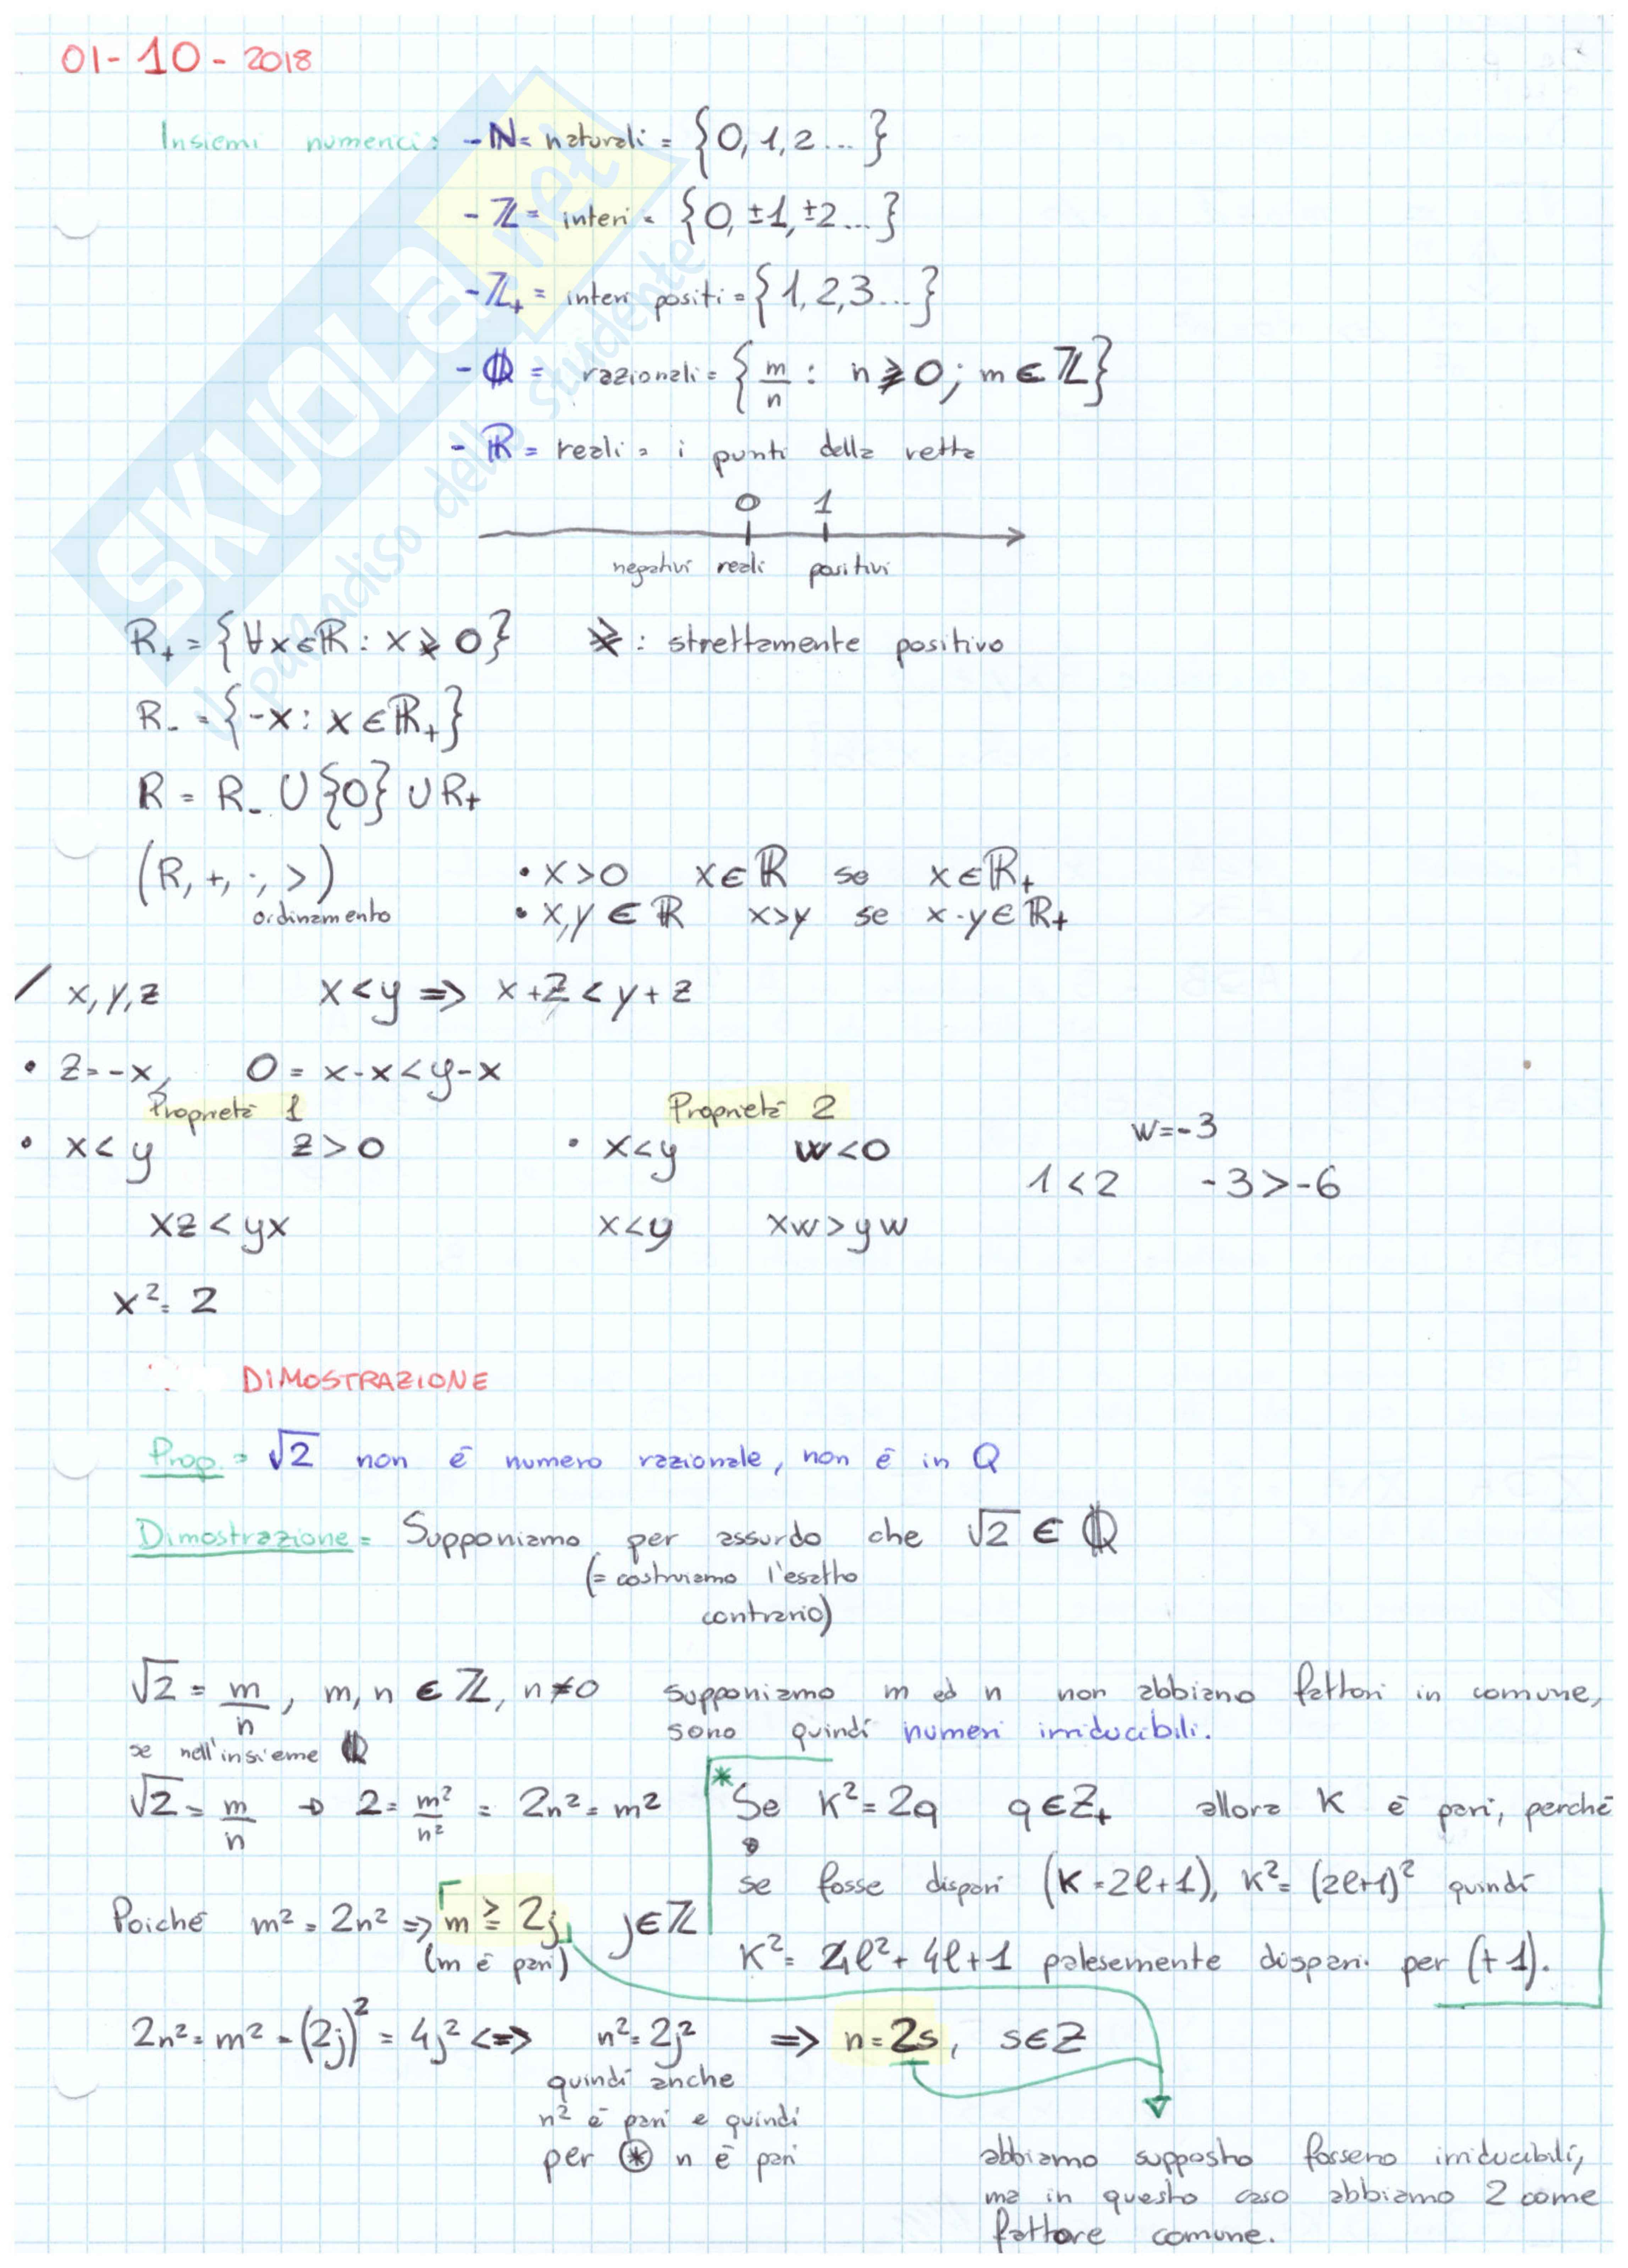 01-10-2018
Insiemi numerici: - ℕ = naturali = {0, 1, 2 ... }
- ℤ = interi = {0, ±1, ±2 ... }
- ℤ₊ = interi positi = {1, 2, 3 ... }
- ℚ = razionali = { m/n : n ≩ 0; m ∈ ℤ}
- ℝ = reali = i punti della retta
0 1
negativi reali positivi
R₊ = {∀x ∈ ℝ : x ≩ 0} ≩ : strettamente positivo
R₋ = {-x : x ∈ ℝ₊}
R = R₋ ∪ {0} ∪ R₊
(R, +, ·, >) • x > 0 x ∈ ℝ se x ∈ ℝ₊
ordinamento • x, y ∈ ℝ x > y se x - y ∈ ℝ₊
/ x, y, z x < y ⇒ x + z < y + z
• z = -x, 0 = x - x < y - x
Proprietà 1 Proprietà 2
• x < y z > 0 • x < y w < 0 w = -3
1 < 2 -3 > -6
xz < yx x < y xw > yw
x² = 2
DIMOSTRAZIONE
Prop. = √2 non è numero razionale, non è in Q
Dimostrazione = Supponiamo per assurdo che √2 ∈ ℚ
(= costruiamo l'esatto
contrario)
√2 = m/n, m, n ∈ ℤ, n ≠ 0 supponiamo m ed n non abbiano fattori in comune,
se nell'insieme ℚ sono quindi numeri irriducibili.
√2 = m/n → 2 = m²/n² = 2n² = m²
* Se K² = 2q q ∈ Z₊ allora K è pari, perché
se fosse dispari (K = 2ℓ+1), K² = (2ℓ+1)² quindi
K² = 4ℓ² + 4ℓ + 1 palesemente dispari per (+1).
Poiché m² = 2n² ⇒ m ≥ 2j, j ∈ ℤ
(m è pari)
2n² = m² = (2j)² = 4j² <=> n² = 2j² ⇒ n = 2s, s ∈ Z
quindi anche
n² è pari e quindi
per ⊛ n è pari
abbiamo supposto fossero irriducibili,
ma in questo caso abbiamo 2 come
fattore comune.
SKUOLA.net
il paradiso dello studente